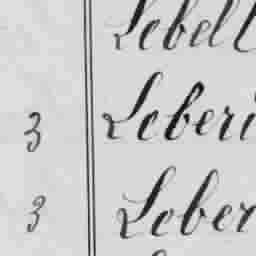 Lebell
3 Leberi
3 Leber